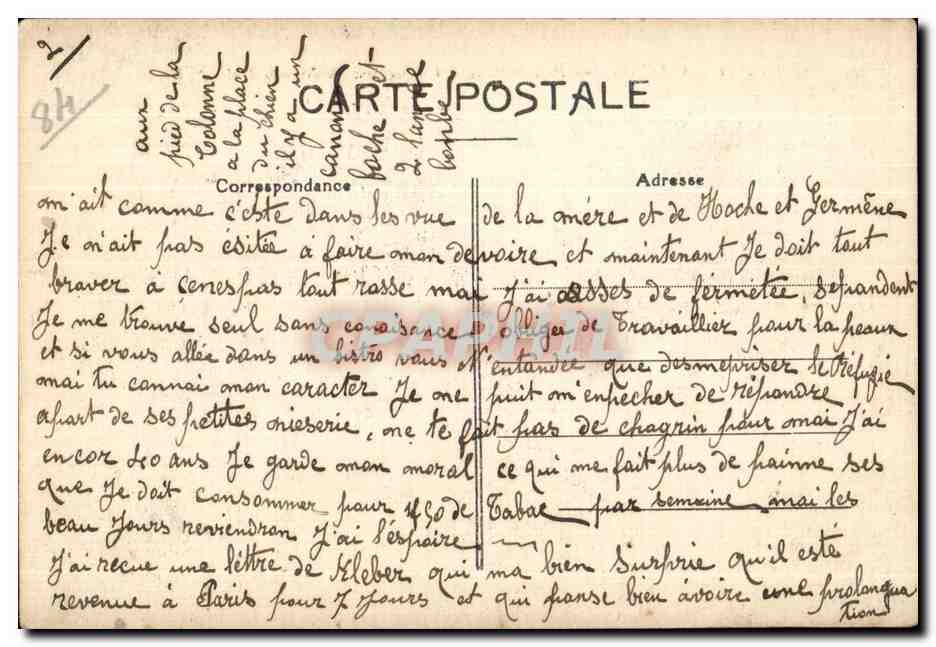 2
84
aux
pied de la
Colonne
a la place
du chien
il y a un
canon
boche et
2 lance
bombe
CARTE POSTALE
Correspondance
Adresse
m'ait comme c'este dans les vue de la mére et de Hoche et Germène
Je n'ait pas ésitée à faire mon devoire et maintenant Je doit tout
braver à cenespas tout rosse mai J'ai asses de fermetée, sependent
Je me trouve seul sans conaisance obliger de Travaillier pour la peaux
et si vous allée dans un bistro vous N'entandée que desmepriser le Réfugié
mai tu connai mon caracter Je me puit m'enpecher de répondre
apart de ses petites nieserie, ne te fait pas de chagrin pour moi J'ai
encor 40 ans Je garde mon moral ce qui me fait plus de painne ses
que Je doit consommer pour 4f50 de Tabac par semaine mai les
beau Jours reviendron J'ai l'éspoire
J'ai reçue une léttre de Kleber qui ma bien surprie qu'il esté
revenue à Paris pour 7 Jours et qui panse bien avoire une prolongua
tion